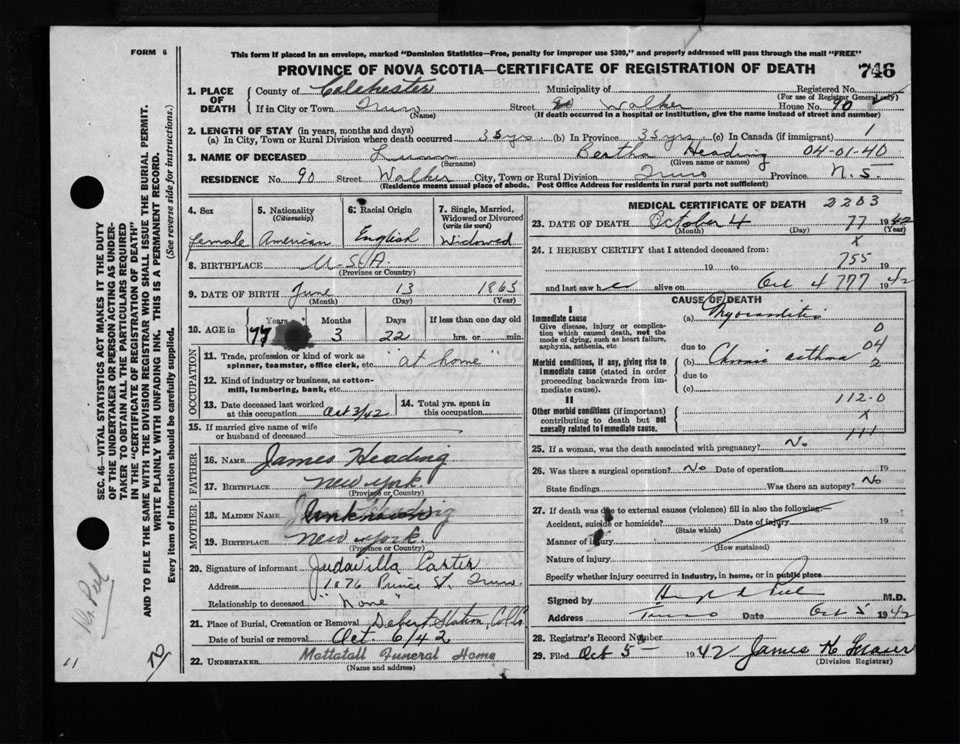 FORM 6
This form if placed in an envelope, marked "Dominion Statistics—Free, penalty for improper use $300," and properly addressed will pass through the mail "FREE"
PROVINCE OF NOVA SCOTIA—CERTIFICATE OF REGISTRATION OF DEATH 746
1. PLACE OF DEATH County of Colchester Municipality of Registered No.
(For use of Registrar General only)
If in City or Town Truro Street Walker House No. 90
(Name) (If death occurred in a hospital or institution, give the name instead of street and number)
2. LENGTH OF STAY (in years, months and days)
(a) In City, Town or Rural Division where death occurred 35 yrs (b) In Province 35 yrs (c) In Canada (if immigrant) 1
3. NAME OF DECEASED Bertha Heading 04-01-40
(Surname) (Given name or names)
RESIDENCE No. 90 Street Walker City, Town or Rural Division Truro Province N.S.
(Residence means usual place of abode. Post Office Address for residents in rural parts not sufficient)
4. Sex
Female
5. Nationality
(Citizenship)
American
6. Racial Origin
English
7. Single, Married, Widowed or Divorced
(write the word)
Widowed
8. BIRTHPLACE U-S-A
(Province or Country)
9. DATE OF BIRTH June 13 1865
(Month) (Day) (Year)
10. AGE in Years Months Days If less than one day old
77 3 22 hrs. or min.
OCCUPATION
11. Trade, profession or kind of work as spinner, teamster, office clerk, etc. "at home"
12. Kind of industry or business, as cotton-mill, lumbering, bank, etc.
13. Date deceased last worked at this occupation Oct 3/42
14. Total yrs. spent in this occupation
15. If married give name of wife or husband of deceased
FATHER
16. NAME James Heading
17. BIRTHPLACE New York
(Province or Country)
MOTHER
18. MAIDEN NAME unknown
19. BIRTHPLACE New York.
(Province or Country)
20. Signature of informant Judavilla Carter
Address Prince St. Truro.
Relationship to deceased "None"
21. Place of Burial, Cremation or Removal Debert Station, Col. Co.
Date of burial or removal Oct. 6/42
22. UNDERTAKER Mattatall Funeral Home
(Name and address)
MEDICAL CERTIFICATE OF DEATH 2203
23. DATE OF DEATH October 4 77 1942
(Month) (Day) (Year)
24. I HEREBY CERTIFY that I attended deceased from: x
19 to 755 19
and last saw her alive on Oct 4 777 1942
CAUSE OF DEATH
I
Immediate cause
Give disease, injury or complication which caused death, not the mode of dying, such as heart failure, asphyxia, asthenia, etc
(a) Myocarditis 0
due to 04
Morbid conditions, if any, giving rise to immediate cause (stated in order proceeding backwards from immediate cause).
(b) Chronic asthma 2
due to
(c)
II
Other morbid conditions (if important) contributing to death but not causally related to immediate cause.
112-0
x
111
25. If a woman, was the death associated with pregnancy? No
26. Was there a surgical operation? No Date of operation 19
State findings Was there an autopsy? No
27. If death was due to external causes (violence) fill in also the following:—
Accident, suicide or homicide? Date of injury 19
(State which)
Manner of injury
(How sustained)
Nature of injury
Specify whether injury occurred in industry, in home, or in public place
Signed by M.D.
Address Truro Date Oct 5 1942
28. Registrar's Record Number
29. Filed Oct 5 1942 James H
(Division Registrar)
SEC. 46—VITAL STATISTICS ACT MAKES IT THE DUTY OF THE UNDERTAKER OR PERSON ACTING AS UNDERTAKER TO OBTAIN ALL THE PARTICULARS REQUIRED IN THE "CERTIFICATE OF REGISTRATION OF DEATH"
AND TO FILE THE SAME WITH THE DIVISION REGISTRAR WHO SHALL ISSUE THE BURIAL PERMIT.
WRITE PLAINLY WITH UNFADING INK. THIS IS A PERMANENT RECORD.
Every item of information should be carefully supplied.
(See reverse side for instructions.)
11